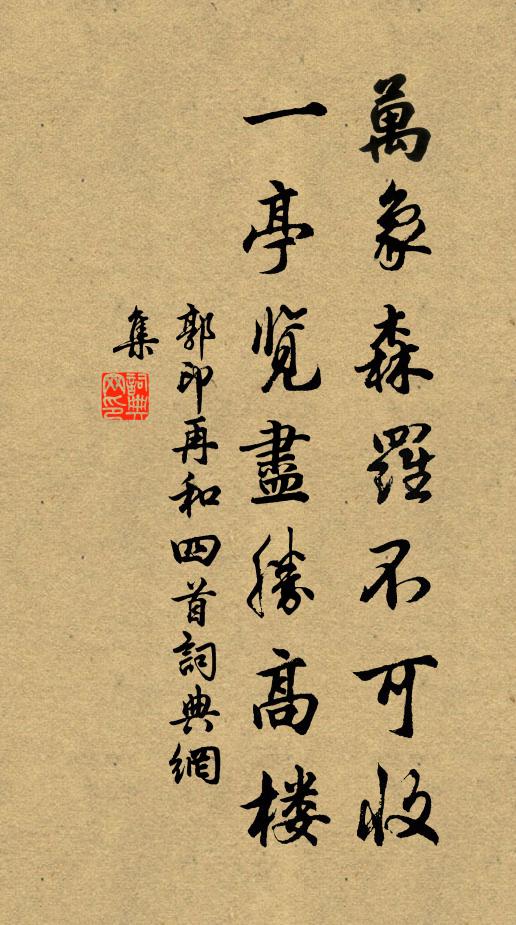 萬象森羅不可收
一亭覽盡勝高楼
郭印再和四首詞典網
集
詞典